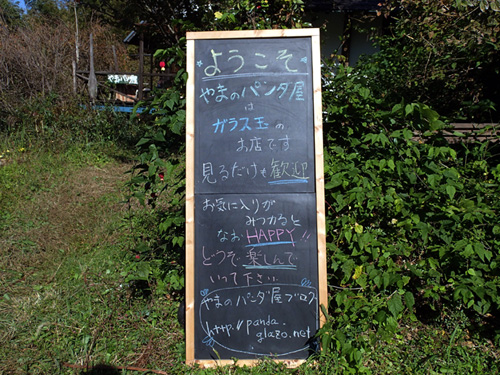 ようこそ
やまのパンダ屋
は
ガラス玉の
お店です
見るだけも歓迎
お気に入りが
みつかると
なお HAPPY
どうぞ楽しんで
いって下さい
やまのパンダ屋ブログ
http://panda.
glazo.net